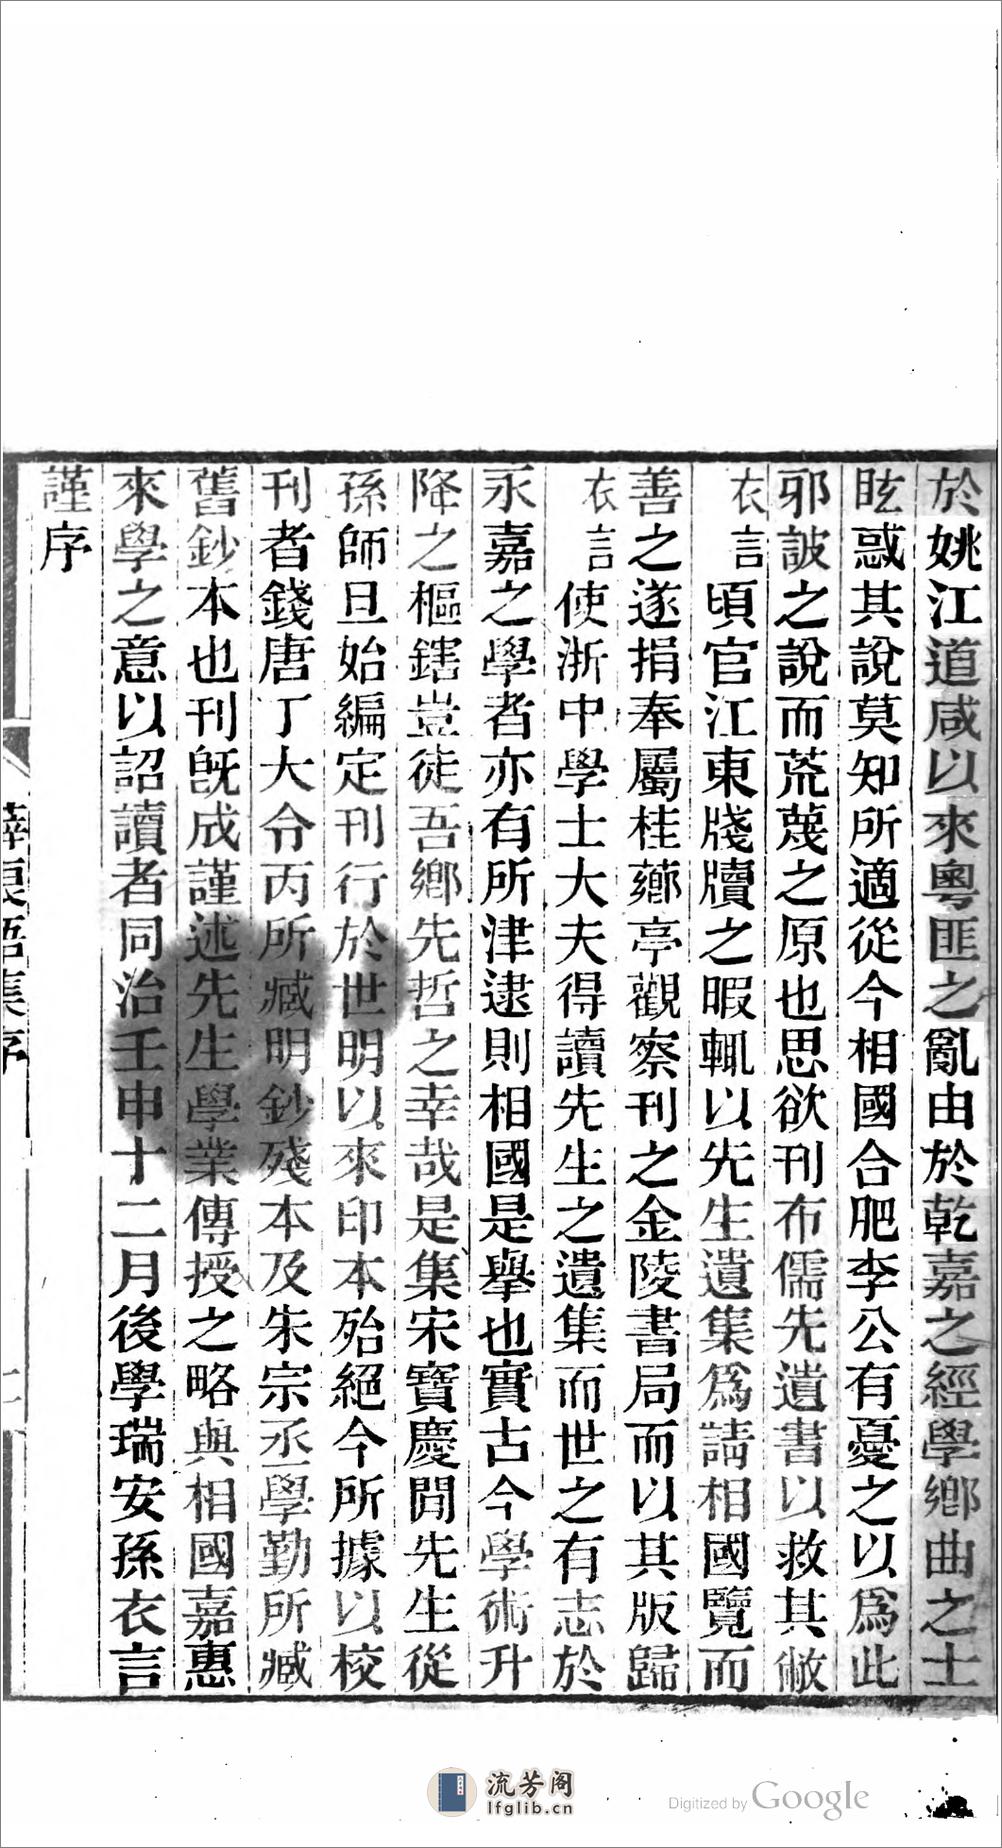 於姚江道咸以來粤匪之亂由於乾嘉之經學鄉曲之士
眩惑其說莫知所適從今相國合肥李公有憂之以爲此
邪詖之說而荒蔑之原也思欲刊布儒先遺書以救其敝
衣言頃官江東牋牘之暇輒以先生遺集爲請相國覽而
善之遂捐奉屬桂薌亭觀察刊之金陵書局而以其版歸
衣言使浙中學士大夫得讀先生之遺集而世之有志於
永嘉之學者亦有所津逮則相國是舉也實古今學術升
降之樞鎋豈徒吾鄉先哲之幸哉是集宋寶慶閒先生從
孫師旦始編定刊行於世明以來印本殆絕今所據以校
刊者錢唐丁大令丙所臧明鈔殘本及朱宗丞學勤所臧
舊鈔本也刊旣成謹述先生學業傳授之略與相國嘉惠
來學之意以詔讀者同治壬申十二月後學瑞安孫衣言
謹序
薛浪語集序
二
流芳阁
lfglib.cn
Digitized by Google